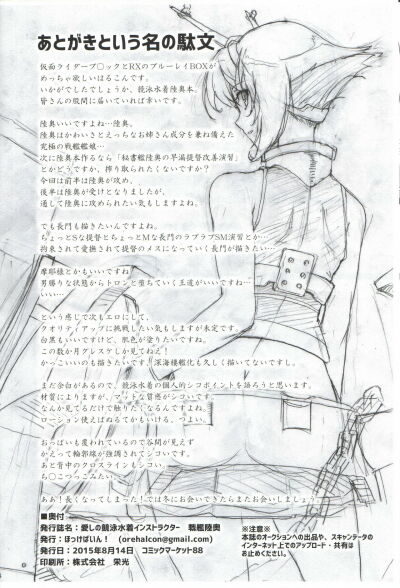 あとがきという名の駄文
仮面ライダーブ〇ックとRXのブルーレイBOXが
めっちゃ欲しいはるこんです。
いかがでしたでしょうか、競泳水着陸奥本、
皆さんの股間に届いていれば幸いです。
陸奥いいですよね…陸奥。
陸奥はかわいさとえっちなお姉さん成分を兼ね備えた
究極の戦艦艦娘…
次に陸奥本作るなら「秘書艦陸奥の早漏提督改善演習」
とかどうですか、搾り取られたくないですか？
今回は前半は陸奥が攻め、
後半は陸奥が受けとなりましたが、
通して陸奥に攻められたい気もしますよね。
でも長門も描きたいんですよね。
ちょっとSな提督とちょっとMな長門のラブラブSM演習とか…
拘束されて愛撫されて提督のメスになっていく長門が描きたい…
摩耶様とかもいいですね
男勝りな状態からトロンと堕ちていく王道がいいですね…
いい…
という感じで次もエロにして、
クオリティアップに挑戦したい気もしますが未定です。
白黒もいいですけど、肌色が塗りたいですね。
この数か月グレスケしか見てねえ！
かっこいいのも描きたいです。深海棲艦化も久しく描いてないですし。
まだ余白があるので、競泳水着の個人的シコポイントを語ろうと思います。
材質によりますが、マットな質感がシコいです。
なんか見てるだけで触りたくなるんですよね。
ローション使えばぬるてかもいける、つよい。
おっぱいも覆われているので谷間が見えず
かえって輪郭線が強調されてシコいです。
あと背中のクロスラインもシコい。
ち〇こつっこみたい。
ああ！長くなってしまった！では冬にお会いできたらまたお会いしましょう
■奥付
発行誌名：愛しの競泳水着インストラクター　戦艦陸奥
発行：ほっけばいん！　(orehalcon@gmail.com)
発行日：2015年8月14日　コミックマーケット88
印刷所：株式会社　栄光
※注意※
本誌のオークションへの出品や、スキャンデータの
インターネット上でのアップロード・共有は
お止めください。